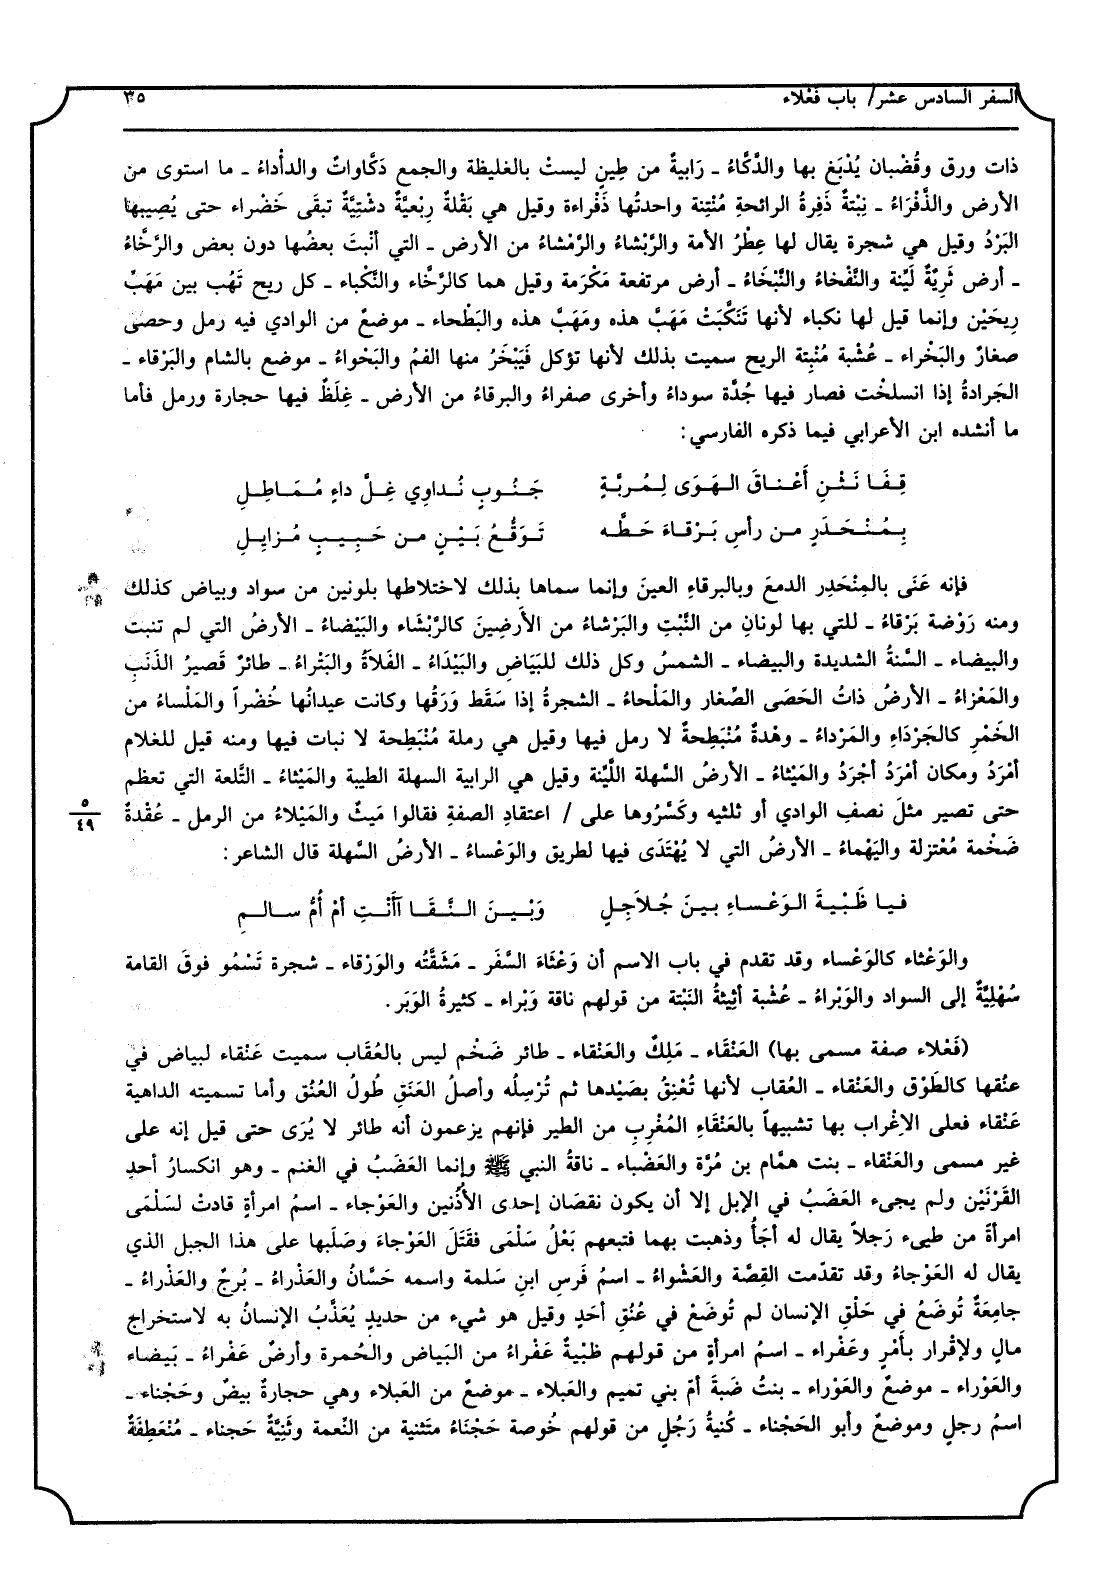 السفر السادس عشر/ باب فَعْلاء
٣٥
ذات ورق وقُضْبان يُدْبَغ بها والدَّكَّاءُ ـ رَابيةٌ من طِينٍ ليستْ بالغليظة والجمع دَكَّاواتٌ والدأْداءُ ـ ما استوى من
الأرض والذَّفْرَاءُ ـ نِبْتةٌ ذَفِرةُ الرائحةِ مُنْتِنة واحدتُها ذَفْراءة وقيل هي بَقْلة رِبْعيَّةٌ دشْتِيَّةٌ تبقى خَضْراء حتى يُصِيبها
البَرْدُ وقيل هي شجرة يقال لها عِطْرُ الأمة والرَّبْشاءُ والرَّمْشاءُ من الأرض ـ التي أنْبتَ بعضُها دون بعض والرَّخَّاءُ
ـ أرض ثَرِيَّةٌ لَيِّنة والنَّفْخاءُ والنَّبْخَاءُ ـ أرض مرتفعة مَكْرَمة وقيل هما كالرَّخَّاء والنَّكْباء ـ كل ريح تَهُب بين مَهَبِّ
رِيحَيْن وإنما قيل لها نكباء لأنها تَنَكَّبَتْ مَهَبَّ هذه ومَهَبَّ هذه والبَطْحاء ـ موضعٌ من الوادي فيه رمل وحصى
صغارٌ والبَخْراء ـ عُشْبة مُنْبِتة الريح سميت بذلك لأنها تؤكل فَيَبْخَرُ منها الفمُ والبَحْواءُ ـ موضع بالشام والبَرْقاء ـ
الجَرادةُ إذا انسلخْت فصار فيها جُدَّة سوداءُ وأخرى صفراءُ والبرقاءُ من الأرض ـ غِلَظٌ فيها حجارة ورمل فأما
ما أنشده ابن الأعرابي فيما ذكره الفارسي:
قِفَا نَثْنِ أَعْناقَ الهَوَى لِمُربَّةٍ جَنُوبٍ نُداوِي غِلَّ داءٍ مُمَاطِلِ
بِمُنْحَدَرٍ من رأسِ بَرْقاءَ حَطَّه تَوَقُّعُ بَيْنٍ من حَبِيبٍ مُزايِلِ
فإنه عَنَى بالمِنْحَدِر الدمعَ وبالبرقاءِ العينَ وإنما سماها بذلك لاختلاطها بلونين من سواد وبياض كذلك
ومنه رَوْضة بَرْقاءُ ـ للتي بها لونانِ من النَّبْتِ والبَرْشاءُ من الأرضِينَ كالرَّبْشَاء والبَيْضاءُ ـ الأرضُ التي لم تنبت
والبيضاء ـ السَّنةُ الشديدة والبيضاء ـ الشمسُ وكل ذلك للبَيَاضِ والبَيْدَاءُ ـ الفَلاَةُ والبَتْراءُ ـ طائرٌ قَصيرُ الذَنَبِ
والمَعْزاءُ ـ الأرضُ ذاتُ الحَصَى الصِّغار والمَلْحاءُ ـ الشجرةُ إذا سَقَط وَرَقُها وكانت عيدانُها خُضْراً والمَلْساءُ من
الخَمْرِ كالجَرْدَاءِ والمَرْداءُ ـ وهْدةٌ مُنْبَطِحةٌ لا رمل فيها وقيل هي رملة مُنْبَطِحة لا نبات فيها ومنه قيل للغلام
أمْرَدُ ومكان أمْرَدُ أجْرَدُ والمَيْثاءُ ـ الأرضُ السَّهلة اللَّيِّنة وقيل هي الرابية السهلة الطيبة والمَيْثاءُ ـ التَّلعة التي تعظم
حتى تصير مثلَ نصفِ الوادي أو ثلثيه وكَسَّرُوها على / اعتقادِ الصفةِ فقالوا مَيثٌ والمَيْلاءُ من الرمل ـ عُقْدةٌ
٥
٤٩
ضَخْمة مُعْتزلة واليَهْماءُ ـ الأرضُ التي لا يُهْتَدَى فيها لطريق والوَعْساءُ ـ الأرضُ السَّهلة قال الشاعر:
فيا ظَبْيةَ الوَعْساءِ بينَ جُلاَجِلٍ وَبْينَ النَّقَا آأَنْتِ أمْ أُمُّ سالمِ
والوَعْثاء كالوَعْساء وقد تقدم في باب الاسم أن وَعْثَاءَ السَّفَر ـ مَشَقَّتُه والوَرْقاء ـ شجرة تَسْمُو فوقَ القامة
سُهْلِيَّةٌ إلى السواد والوَبْراءُ ـ عُشْبة أثِيثةُ النَبْتة من قولهم ناقة وَبْراء ـ كثيرةُ الوَبَر.
(فَعْلاء صفة مسمى بها) العَنْقَاء ـ مَلِكٌ والعَنْقاء ـ طائر ضَخْم ليس بالعُقَاب سميت عَنْقاء لبياض في
عنُقها كالطَوْق والعَنْقاء ـ العُقاب لأنها تُعْنِقُ بصَيْدها ثم تُرْسِلُه وأصلُ العَنَقِ طُولُ العُنُق وأما تسميته الداهية
عَنْقاء فعلى الاِغْراب بها تشبيهاً بالعَنْقَاءِ المُغْرِبِ من الطير فإنهم يزعمون أنه طائر لا يُرَى حتى قيل إنه على
غير مسمى والعَنْقاء ـ بنت همَّام بن مُرَّة والعَضْباء ـ ناقةُ النبي ﷺ وإنما العَضَبُ في الغنم ـ وهو انكسارُ أحدِ
القَرْنَيْن ولم يجىء العَضَبُ في الإبل إلا أن يكون نقصَان إحدى الأُذُنين والعَوْجاء ـ اسمُ امرأةٍ قادتْ لسَلْمَى
امرأةَ من طيىء رَجلاً يقال له أجَأُ وذهبت بهما فتبعهم بَعْلُ سَلْمَى فقَتَلَ العَوْجاءَ وصَلَبها على هذا الجبل الذي
يقال له العَوْجاءُ وقد تقدّمت القِصَّة والعَشْواءُ ـ اسمُ فَرسِ ابنِ سَلمة واسمه حَسَّانُ والعَذْراءُ ـ بُرجٌ والعَذْراءُ ـ
جامِعَةٌ تُوضَعُ في حَلْقِ الإنسان لم تُوضَعْ في عُنُقِ أحَدٍ وقيل هو شيء من حديدٍ يُعَذَّبُ الإنسانُ به لاستخراج
مالٍ ولإقْرار بأَمْرٍ وعَفْراء ـ اسمُ امرأةٍ من قولهم ظَبْيةٌ عَفْراءُ من البَياض والحُمرة وأرضٌ عَفْراءُ ـ بَيضاء
والعَوْراء ـ موضعٌ والعَوْراء ـ بنتُ ضَبةَ أمّ بني تميم والعَبلاء ـ موضعٌ من العَبلاء وهي حجارةٌ بيضٌ وحَجْناء ـ
اسمُ رجلٍ وموضعٌ وأبو الحَجْناء ـ كُنيةُ رَجُلٍ من قولهم خُوصة حَجْناءُ متَثنية من النِّعمة وثَنِيَّةٌ حَجناء ـ مُنْعَطِفَةٌ